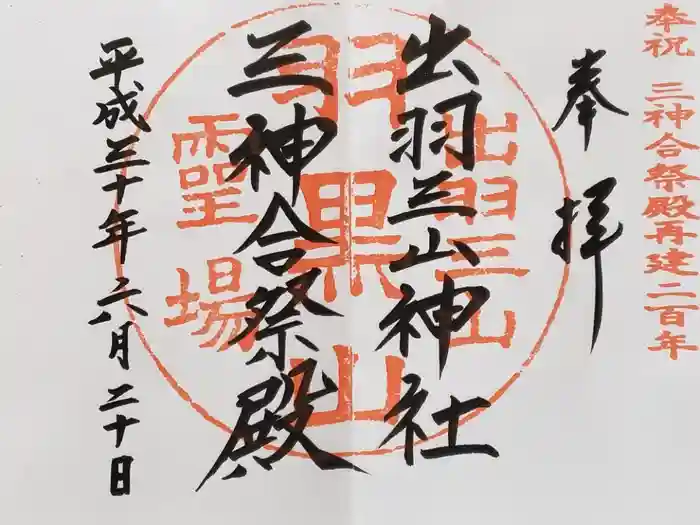 奉祝 三神合祭殿再建二百年
奉拝
出羽三山神社
三神合祭殿
平成三十年 六月二十日
出羽三山
羽黒山
霊場